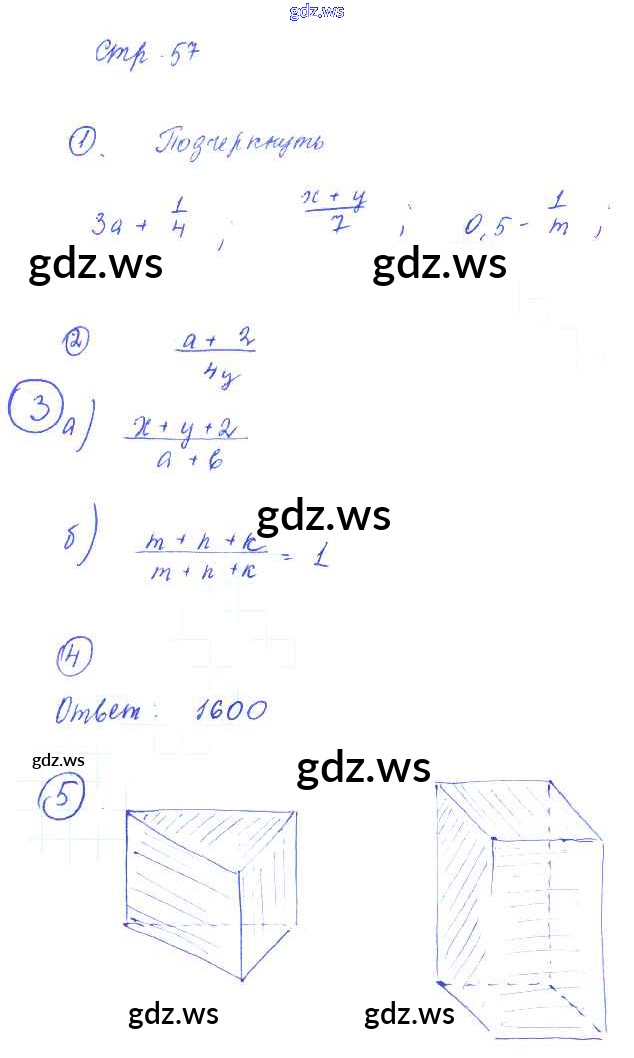 gdz.ws
Стр. 57
① Подчеркнуть
3a + 1/4 ; (x + y)/7 ; 0,5 - 1/m ;
gdz.ws gdz.ws
② (a + 2)/4y
③ а) (x + y + 2)/(a + b)
gdz.ws
б) (m + n + k)/(m + n + k) = 1
④
Ответ: 1600
gdz.ws gdz.ws
⑤
gdz.ws gdz.ws